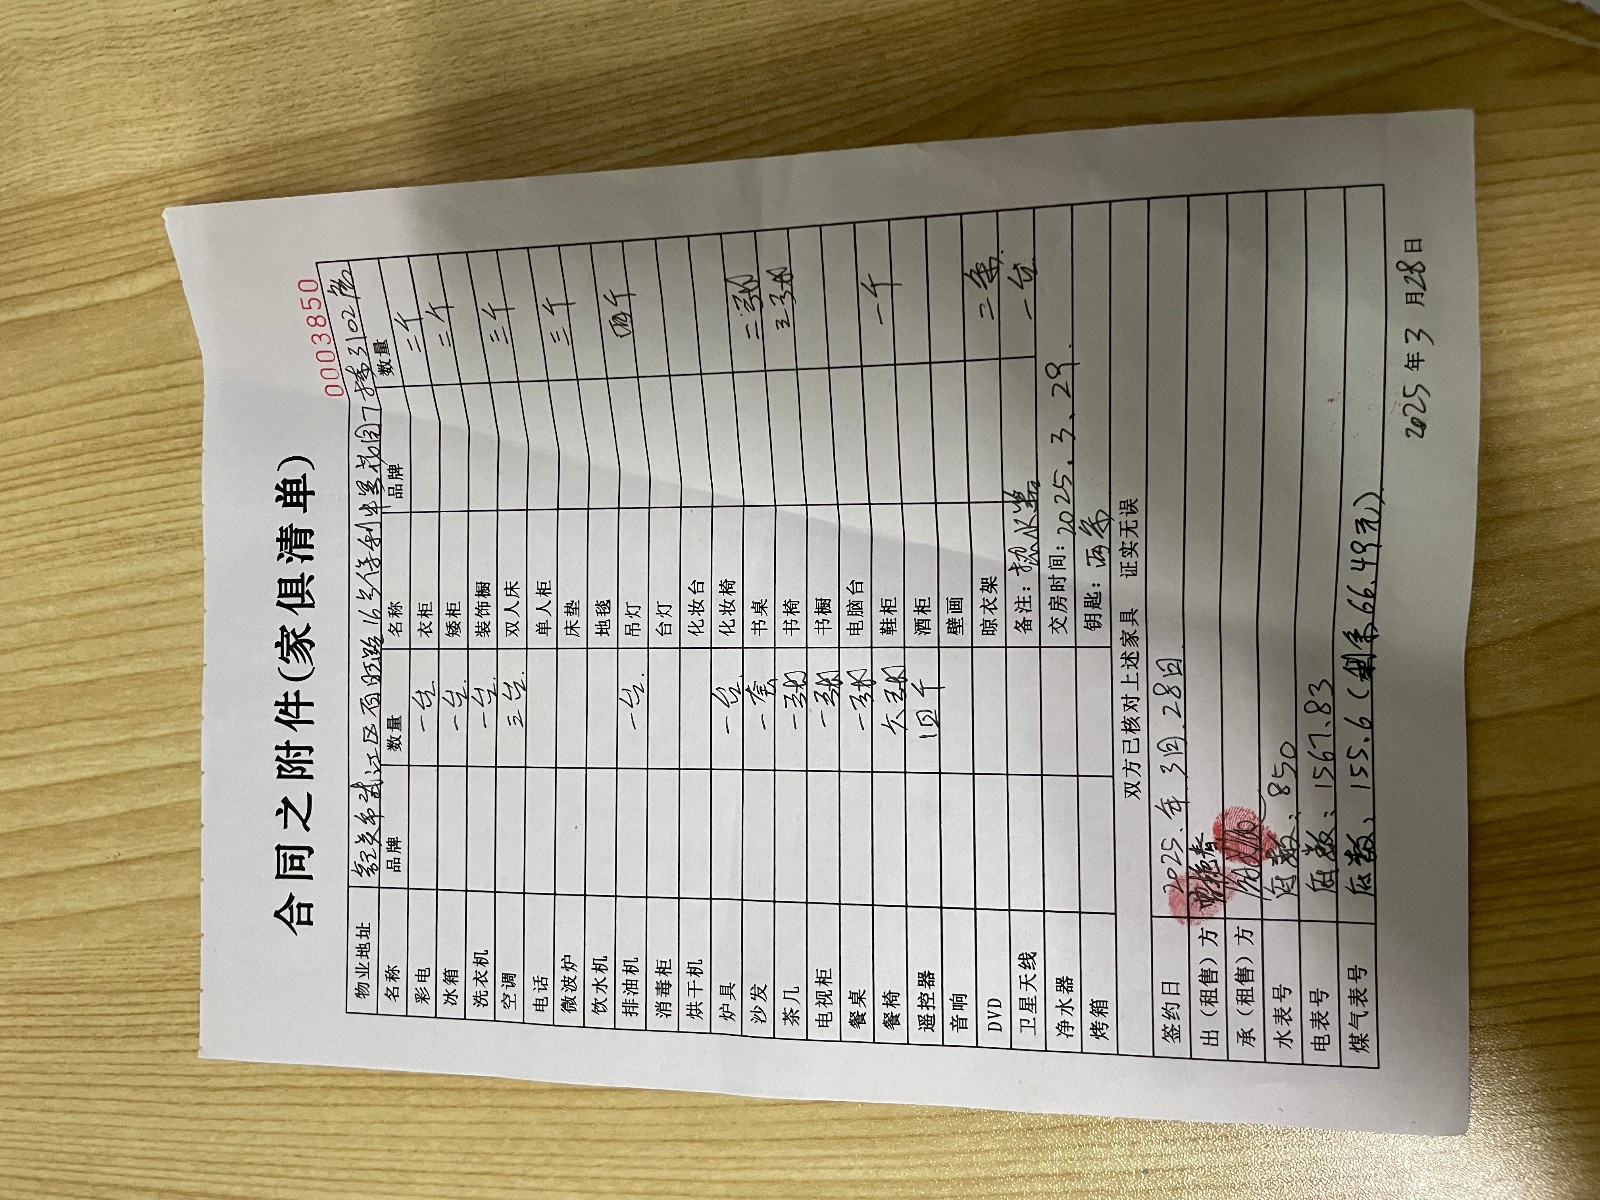 0003850
合同之附件(家俱清单)
物业地址 韶关市武江区百旺路16号保利中景花园7栋3102房
名称 品牌 数量 名称 品牌 数量
彩电 一台 衣柜 三个
冰箱 一台 矮柜 三个
洗衣机 一台 装饰橱
空调 三台 双人床 三个
电话 单人柜
微波炉 床垫 三个
饮水机 地毯
排油机 一台 吊灯 四个
消毒柜 台灯
烘干机 化妆台
炉具 一台 化妆椅
沙发 一套 书桌 二张
茶几 一张 书椅 三张
电视柜 一张 书橱
餐桌 一张 电脑台
餐椅 六张 鞋柜 一个
遥控器 四个 酒柜
音响 壁画
DVD 晾衣架 二条
卫星天线 备注: 热水器 一台
净水器 交房时间: 2025.3.29.
烤箱 钥匙: 两条
双方已核对上述家具 证实无误
签约日 2025.年3月.28日
出(租售)方
承(租售)方
水表号 底数: 850
电表号 底数: 1567.83
煤气表号 底数: 155.6 (剩余66.49元)
2025年3月28日